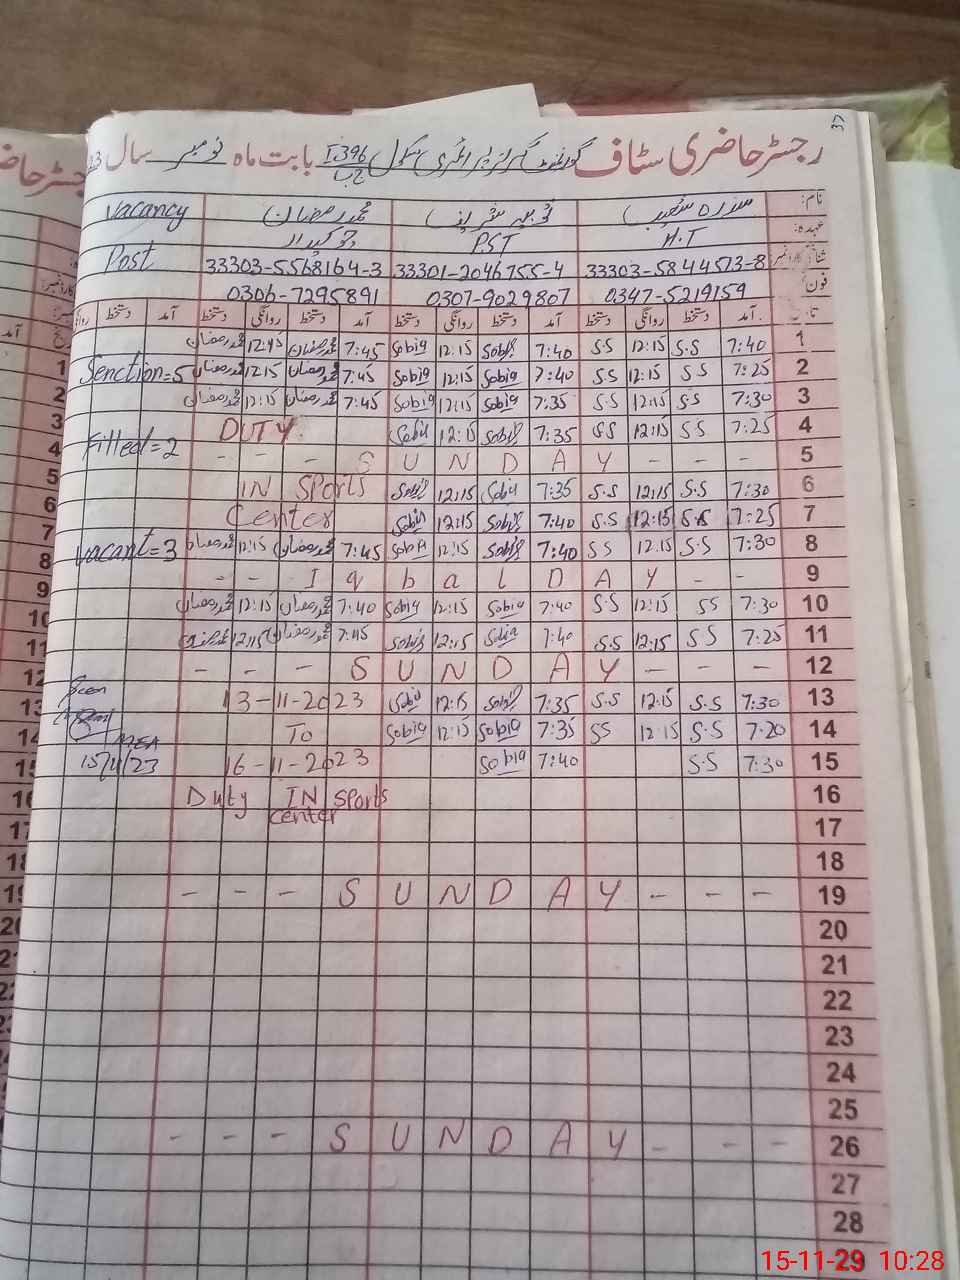 رجسٹر حاضری سٹاف گورنمنٹ گرلز پرائمری سکول 396 ج ب بابت ماہ نومبر سال 23
37
نام: سدرہ شعیب محمد رمضان Vacancy
عہدہ: H.T PST چوکیدار
شناختی کارڈ نمبر: 33303-5844573-8 33301-2046755-4 33303-5568164-3 Post
فون: 0347-5219159 0307-9029807 0306-7295891
آمد دستخط روانگی دستخط آمد دستخط روانگی دستخط آمد دستخط روانگی دستخط آمد دستخط
1 7:40 S.S 12:15 S.S 7:40 Sobia 12:15 Sobia 7:45 محمد رمضان 12:45 محمد رمضان
2 7:25 S S 12:15 S S 7:40 Sobia 12:15 Sobia 7:45 محمد رمضان 12:15 محمد رمضان Senction=5
3 7:30 S.S 12:15 S.S 7:35 Sobia 12:15 Sobia 7:45 محمد رمضان 12:15 محمد رمضان
4 7:25 S S 12:15 S S 7:35 Sobia 12:15 Sobia DUTY
Filled=2
5 - - - S U N D A Y - - -
6 7:30 S.S 12:15 S.S 7:35 Sobia 12:15 Sobia IN SPorts
7 7:25 S.S 12:15 S.S 7:40 Sobia 12:15 Sobia Center
8 7:30 S.S 12.15 S S 7:40 Sobia 12:15 Sobia 7:45 محمد رمضان 12:15 محمد رمضان Vacant=3
9 - - I q b a L D A Y - -
10 7:30 SS 12:15 S.S 7:40 Sobia 12:15 Sobia 7:40 محمد رمضان 12:15 محمد رمضان
11 7:25 S S 12:15 S.S 7:40 Sobia 12:15 Sobia 7:45 محمد رمضان 12:15 محمد رمضان
12 - - - S U N D A Y - - -
13 7:30 S.S 12:15 S.S 7:35 Sobia 12:15 Sobia 13-11-2023 Seen
14 7:20 S.S 12:15 SS 7:35 Sobia 12:15 Sobia To
MEA
15 7:30 S.S 7:40 Sobia 16-11-2023 15/11/23
16 Duty IN Sports
center
17
18
19 - - - S U N D A Y - - -
20
21
22
23
24
25
26 - - - S U N D A Y - - -
27
28
29
15-11-29 10:28